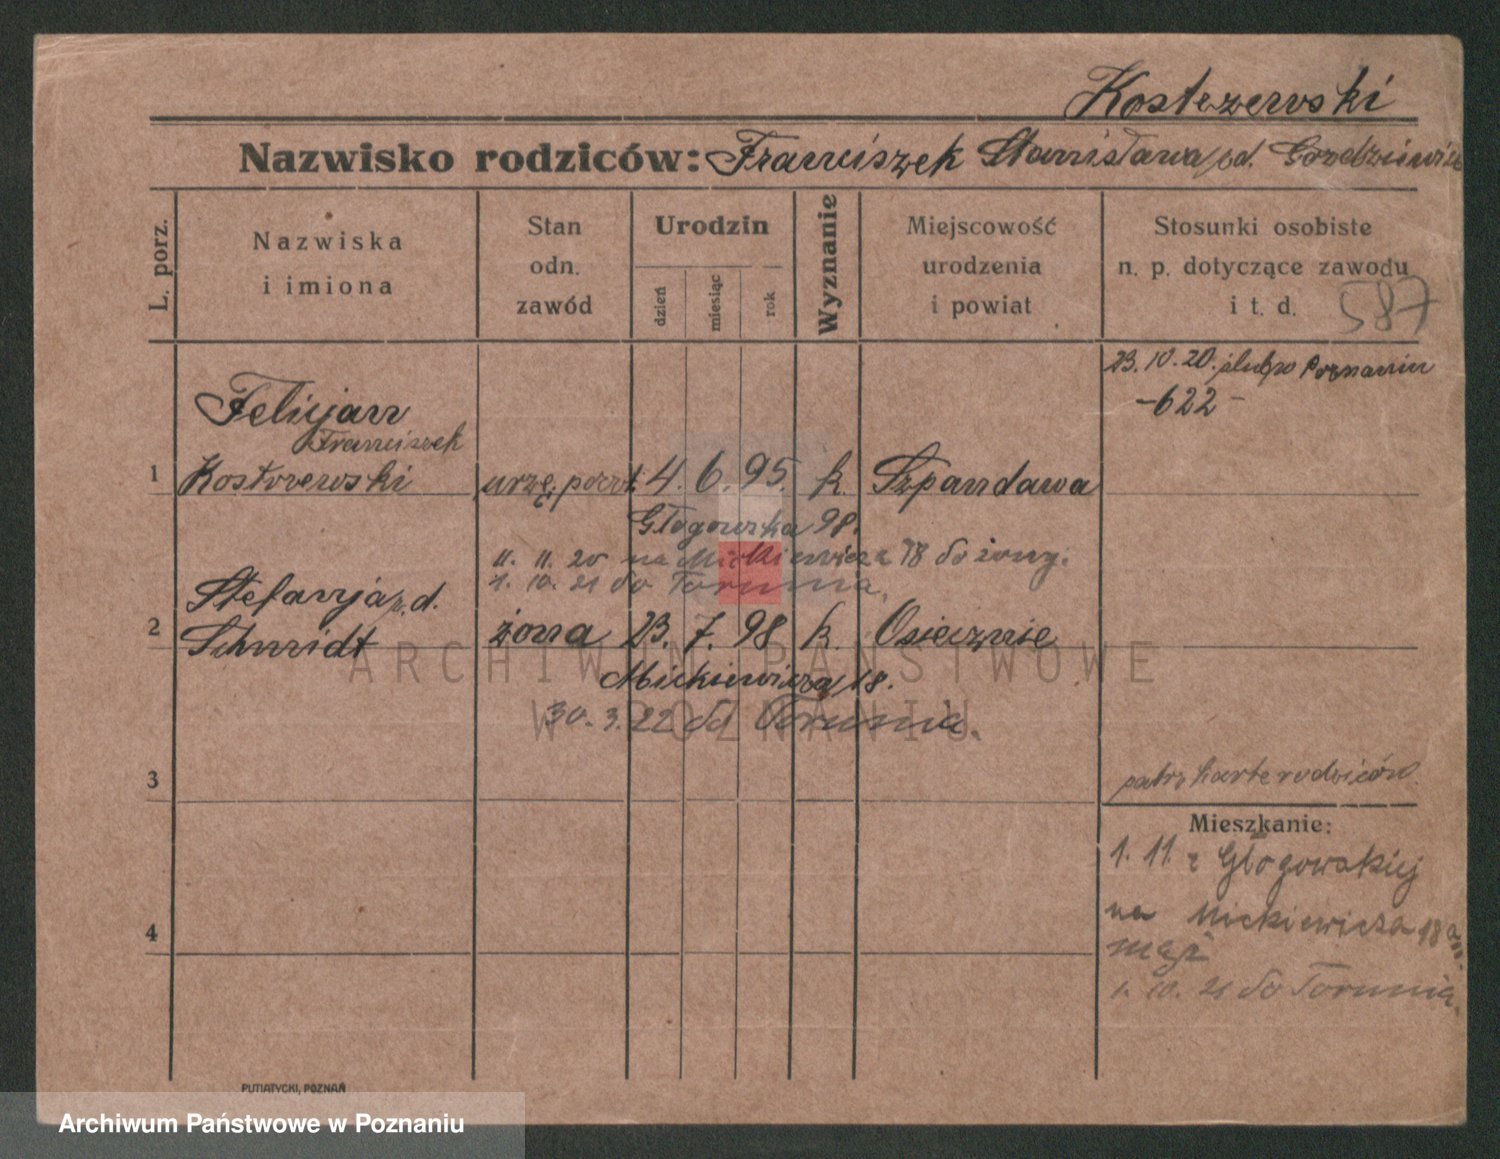 Kostrzewski
Nazwisko rodziców: Franciszek Stanisława pd.
L. porz.
Nazwiska i imiona
Stan odn. zawód
Urodzin
dzień
miesiąc
rok
Wyznanie
Miejscowość urodzenia i powiat
Stosunki osobiste n. p. dotyczące zawodu i t. d.
587
23. 10. 20. ślub w Poznaniu
-622-
Felicjan
Franciszek
1 Kostrzewski urzę. poczt. 4. 6. 95. k. Szpandawa
Głogowska 98.
11. 11. 20 na Mickiewicza 18 do żony.
1. 10. 21 do Torunia.
Stefanja p. d.
2 Schmidt żona 23. 7. 98 k. Osiecznie
Mickiewicza 18.
30. 3. 22 do Torunia.
3
patrz karte rodziców.
Mieszkanie:
1. 11. z Głogowskiej
na Mickiewicza 18
mąż
1. 10. 21 do Torunia.
4
PUTIATYCKI, POZNAŃ
ARCHIWUM PAŃSTWOWE
W POZNANIU
Archiwum Państwowe w Poznaniu